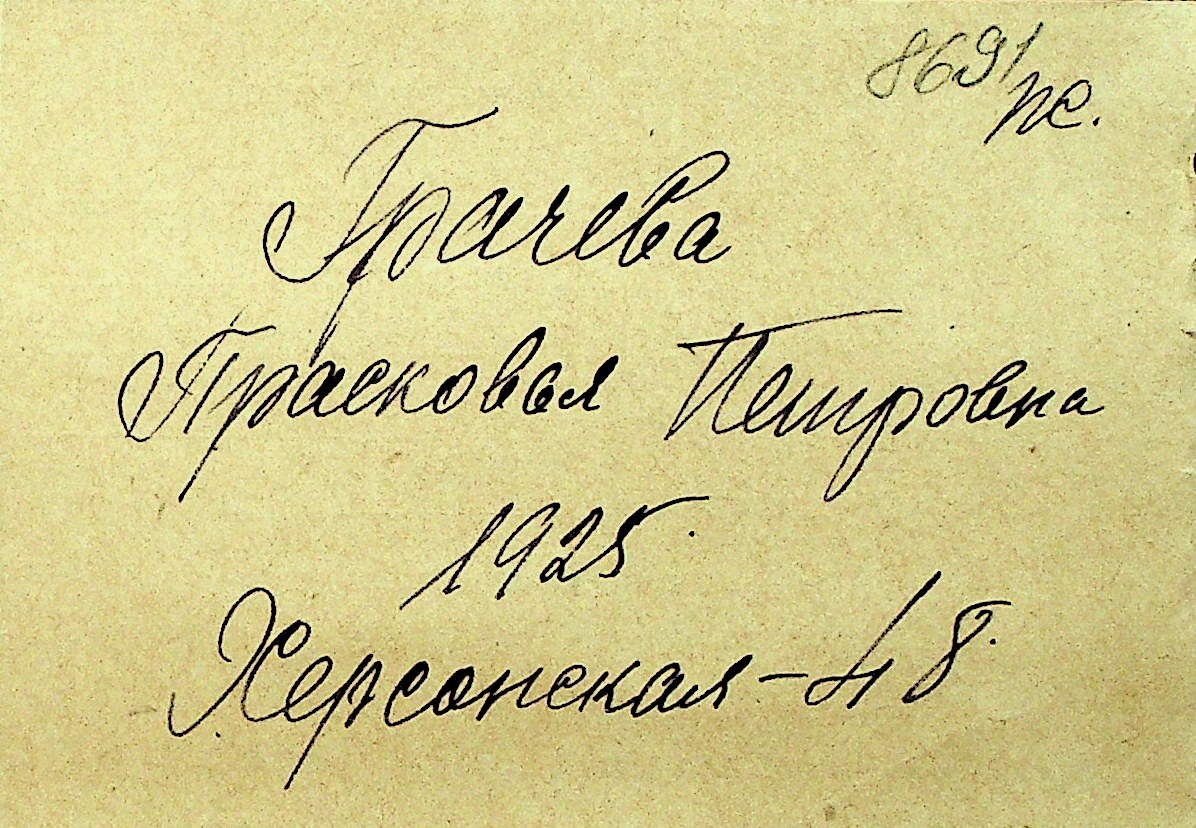 8691
пс.
Грачева
Прасковья Петровна
1925.
Херсонская - 48.